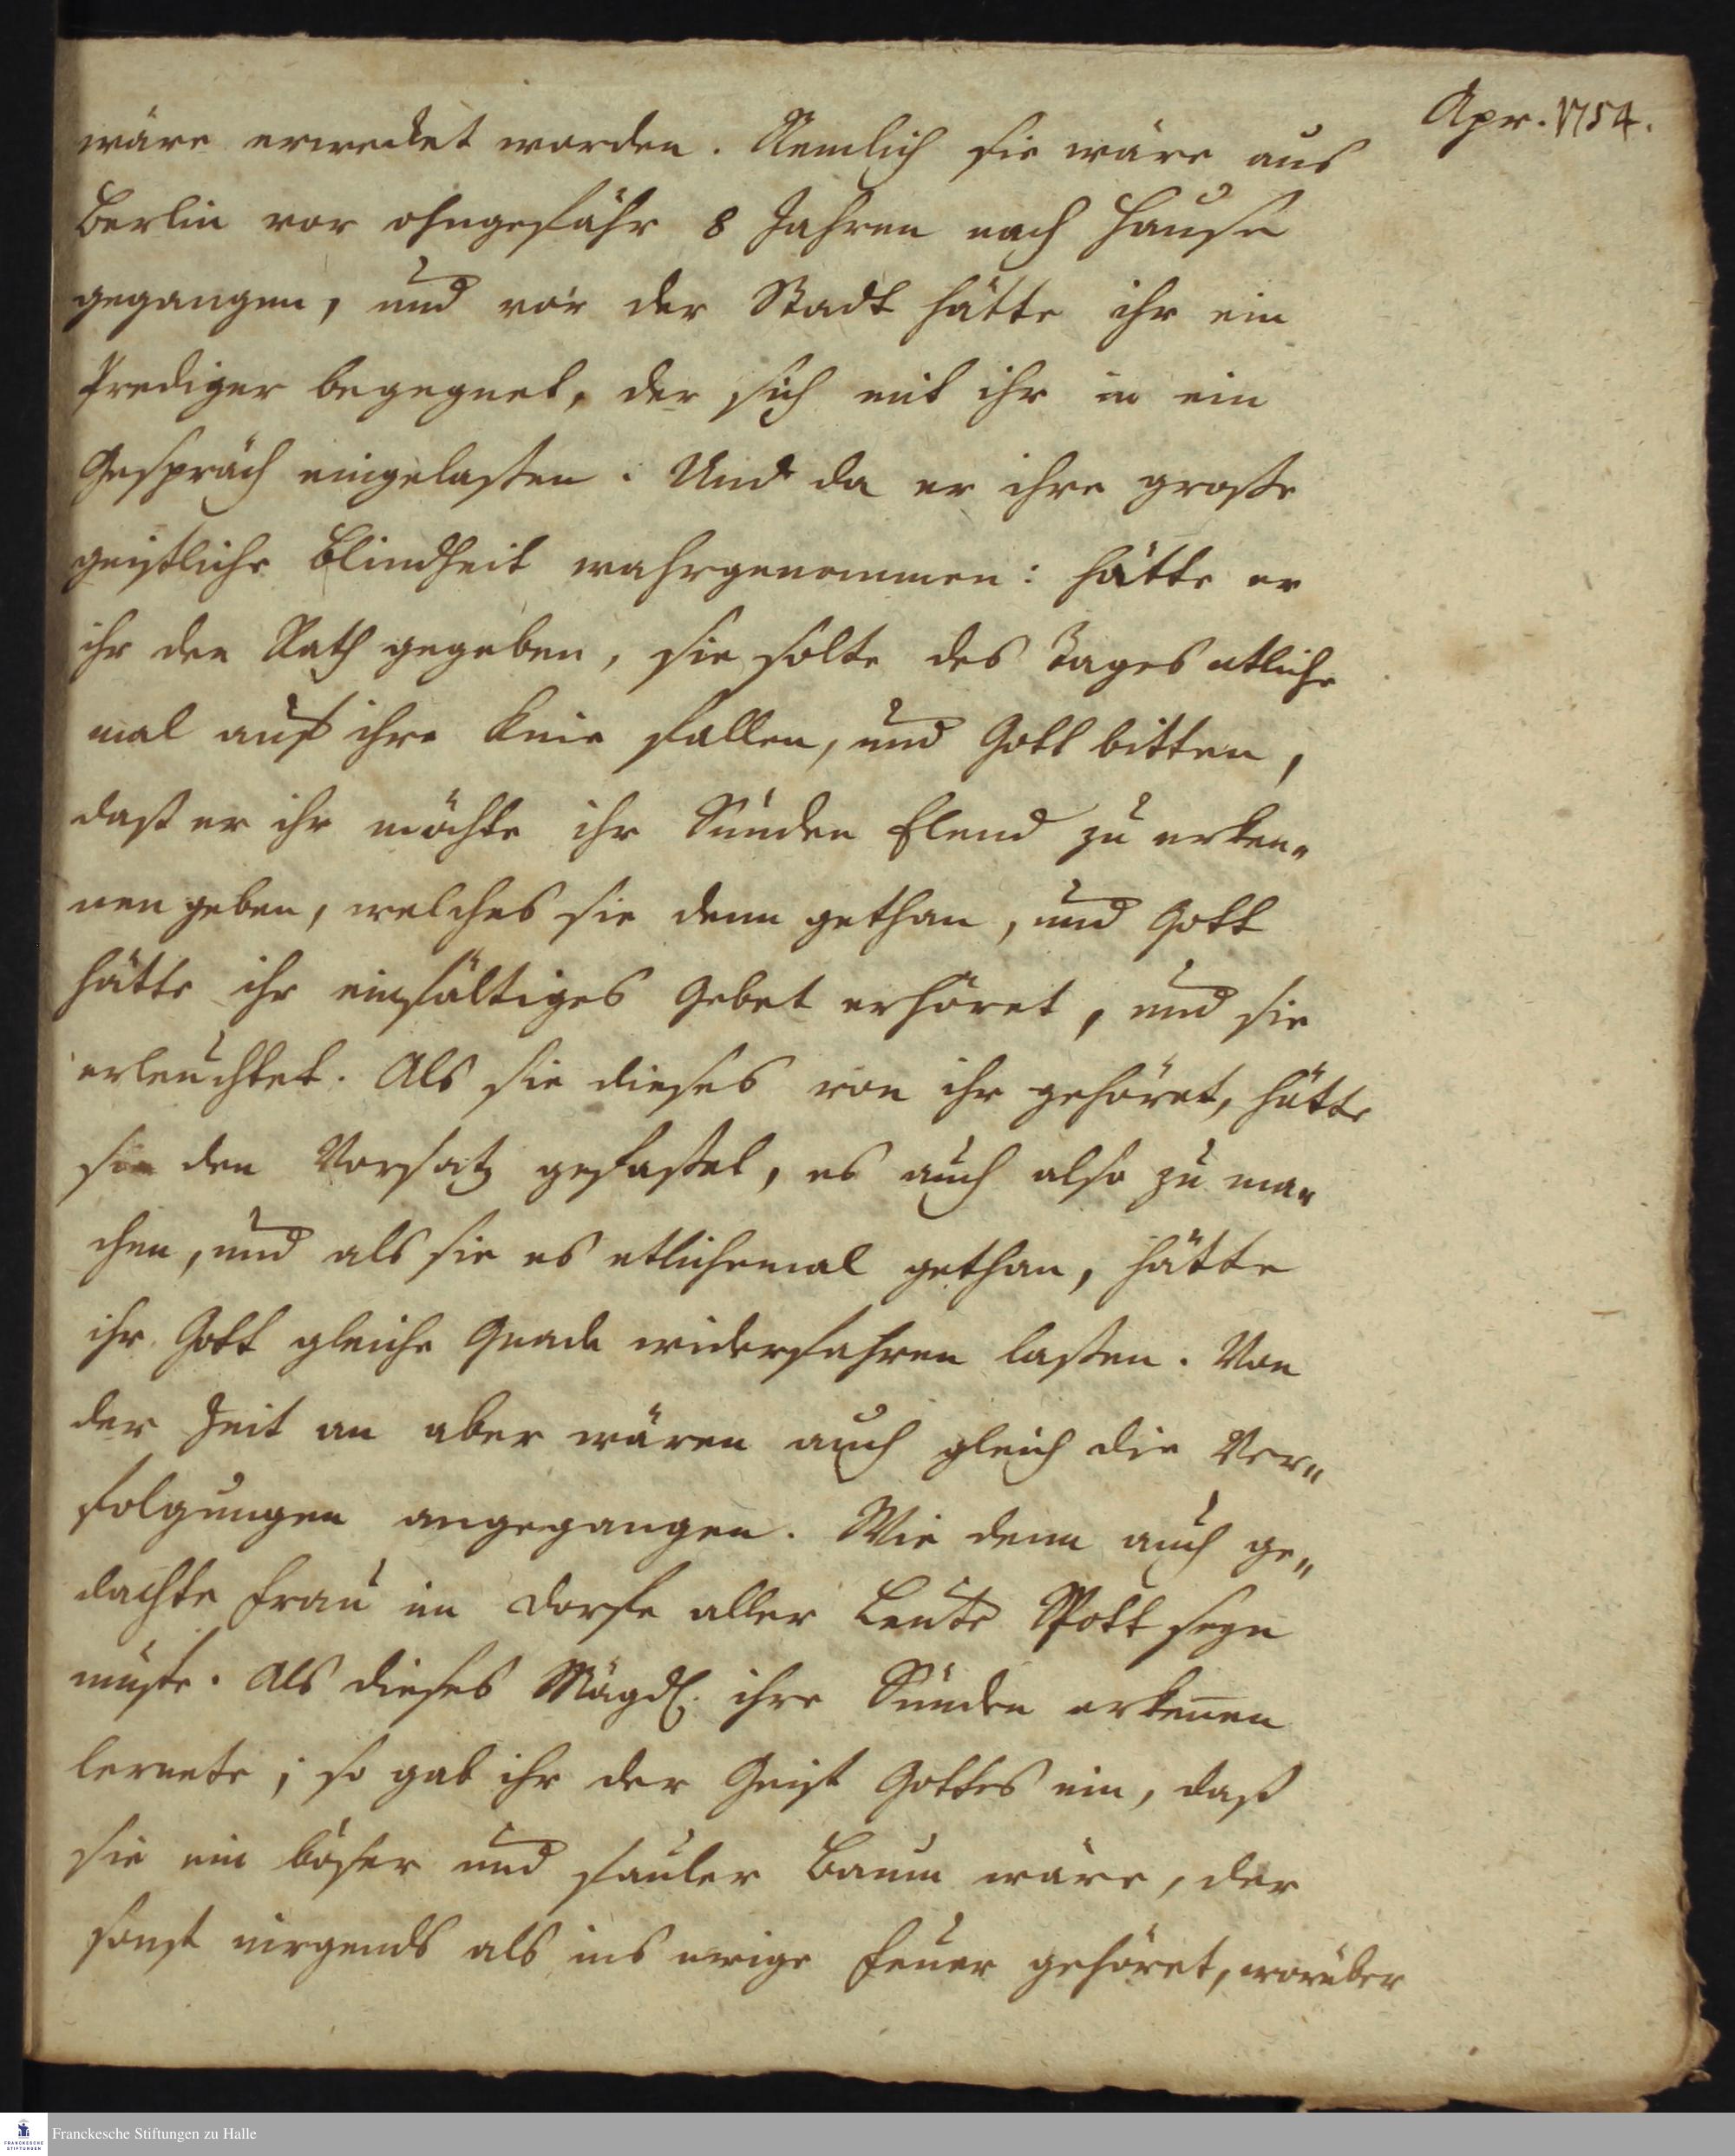 Apr. 1754.
wäre erwecket worden. Nemlich sie wäre aus
Berlin vor ohngefähr 8 Jahren nach Hause
gegangen, und vor der Stadt hätte ihr ein
Prediger begegnet, der sich mit ihr in ein
Gespräch eingelaßen. Und da er ihre große
geistliche Blindheit wahrgenommen: hätte er
ihr den Rath gegeben, sie solte des Tages etliche
mal auf ihre Knie fallen, und Gott bitten,
daß er ihr möchte ihr Sünden Elend zu erken-
nen geben, welches sie denn gethan, und Gott
hätte ihr einfältiges Gebet erhöret, und sie
erleuchtet. Als sie dieses von ihr gehöret, hätte
sie den Vorsatz gefaßet, es auch also zu ma-
chen, und als sie es etlichemal gethan, hätte
ihr Gott gleiche Gnade widerfahren laßen. Von
der Zeit an aber wären auch gleich die Ver-
folgungen angegangen. Wie denn auch ge-
dachte Frau im Dorfe aller Leute Spott seyn
muste. Als dieses Mägdl. ihre Sünden erkenen
lernete; so gab ihr der Geist Gottes ein, daß
sie ein böser und fauler Baum wäre, der
sonst nirgends als ins ewige Feuer gehöret, worüber
Franckesche Stiftungen zu Halle
FRANCKESCHE
STIFTUNGEN